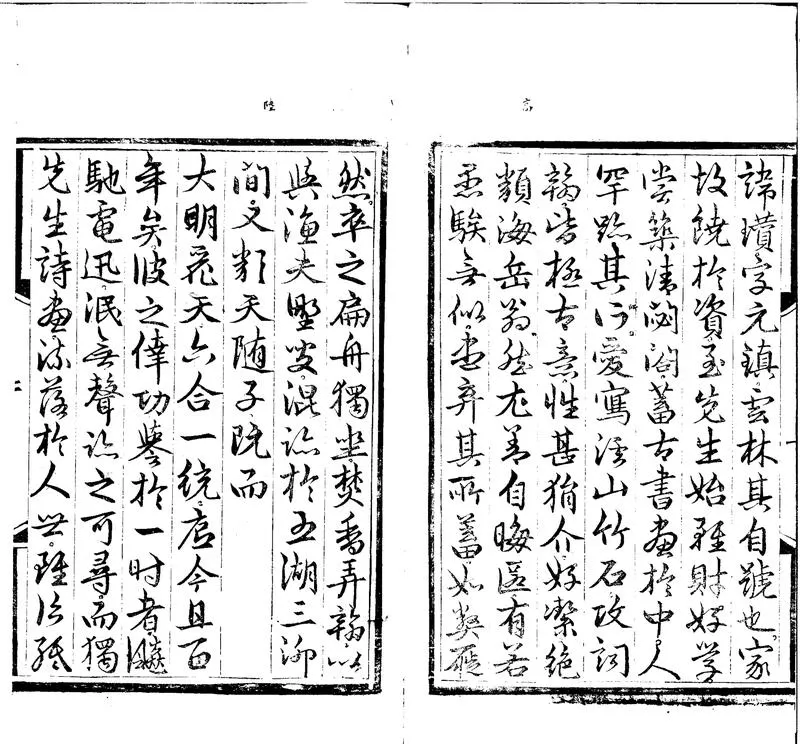 諱瓚字元鎮雲林其自號也家
故饒於資至先生始輕財好學
嘗築清閟閣蓄古書畫於中人
罕跡其所愛寫溪山竹石攻詞
翰皆極古意性甚狷介好潔絕
類海岳翁然尤善自晦匿有若
愚騃無似盡弃其所蓄如屣
陸
然卒之扁舟獨坐焚香弄翰以
與漁夫野叟混跡於五湖三泖
間又類天隨子既而
大明飛天六合一統迄今且百
年矣彼之偉功譽於一時者飈
馳電迅泯無聲跡之可尋而獨
先生詩畫流落於人世雖片紙